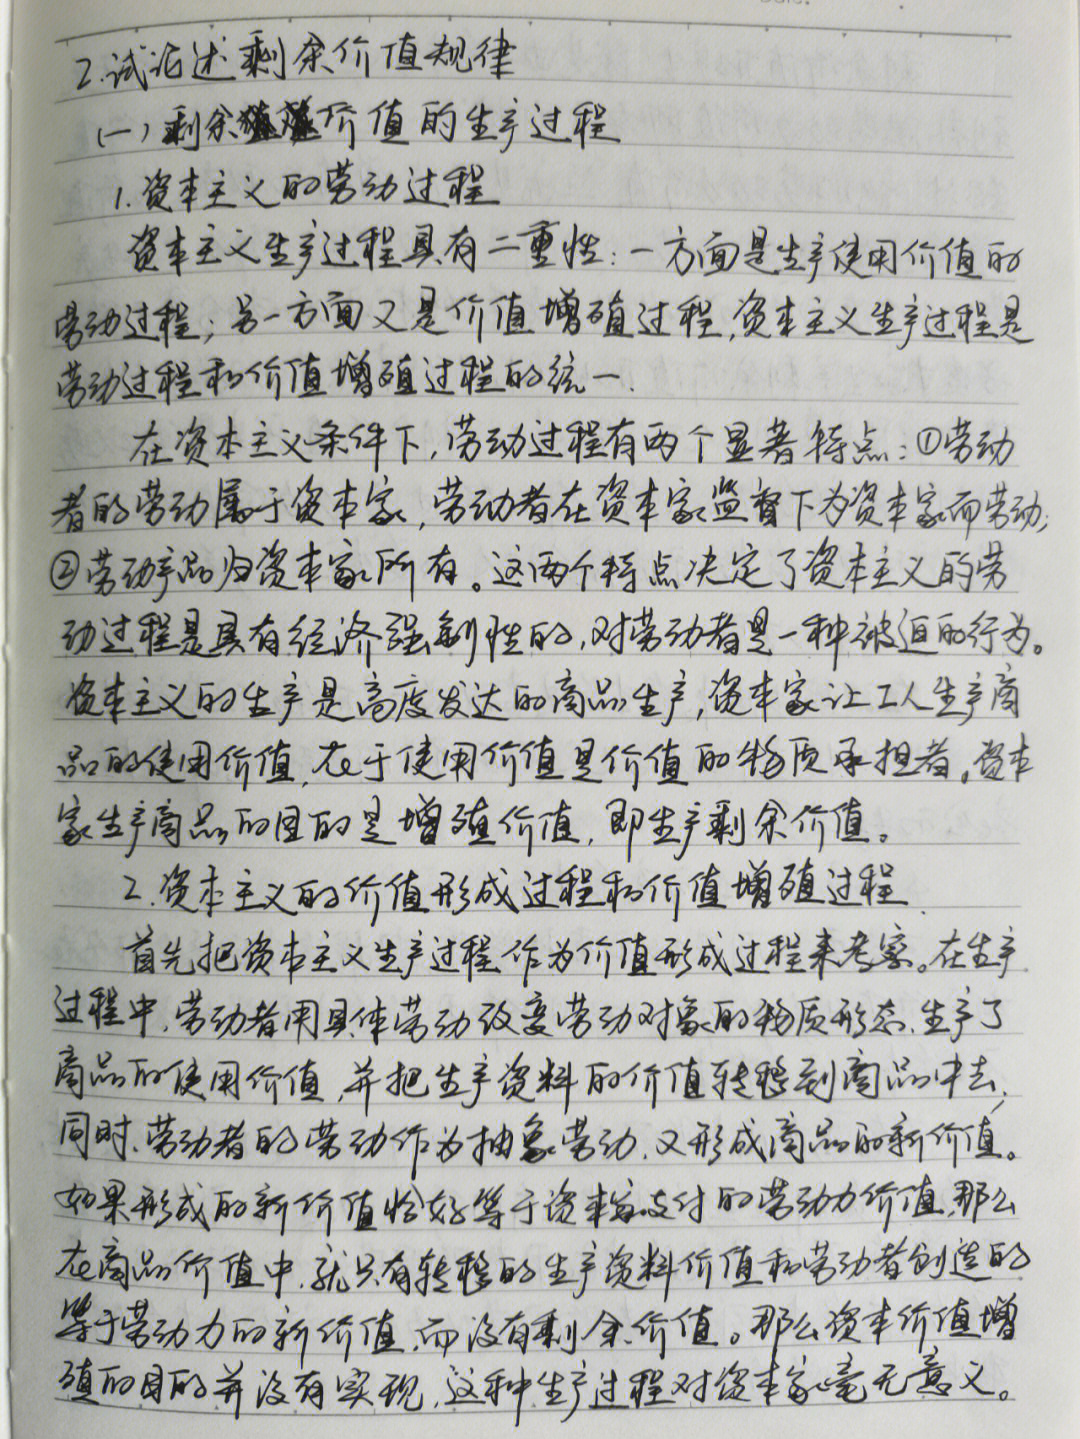 2.试论述剩余价值规律
(一)剩余价值的生产过程
1.资本主义的劳动过程
资本主义生产过程具有二重性:一方面是生产使用价值的
劳动过程;另一方面又是价值增殖过程,资本主义生产过程是
劳动过程和价值增殖过程的统一.
在资本主义条件下,劳动过程有两个显著特点:①劳动
者的劳动属于资本家,劳动者在资本家监督下为资本家而劳动;
②劳动产品归资本家所有。这两个特点决定了资本主义的劳
动过程是具有经济强制性的,对劳动者是一种被迫的行为。
资本主义的生产是高度发达的商品生产,资本家让工人生产商
品的使用价值,在于使用价值是价值的物质承担者。资本
家生产商品的目的是增殖价值,即生产剩余价值。
2.资本主义的价值形成过程和价值增殖过程.
首先把资本主义生产过程作为价值形成过程来考察。在生产
过程中,劳动者用具体劳动改变劳动对象的物质形态,生产了
商品的使用价值,并把生产资料的价值转移到商品中去;
同时,劳动者的劳动作为抽象劳动,又形成商品的新价值。
如果形成的新价值恰好等于资本家支付的劳动力价值,那么
在商品价值中,就只有转移的生产资料价值和劳动者创造的
等于劳动力的新价值,而没有剩余价值。那么资本价值增
殖的目的并没有实现,这种生产过程对资本家毫无意义。